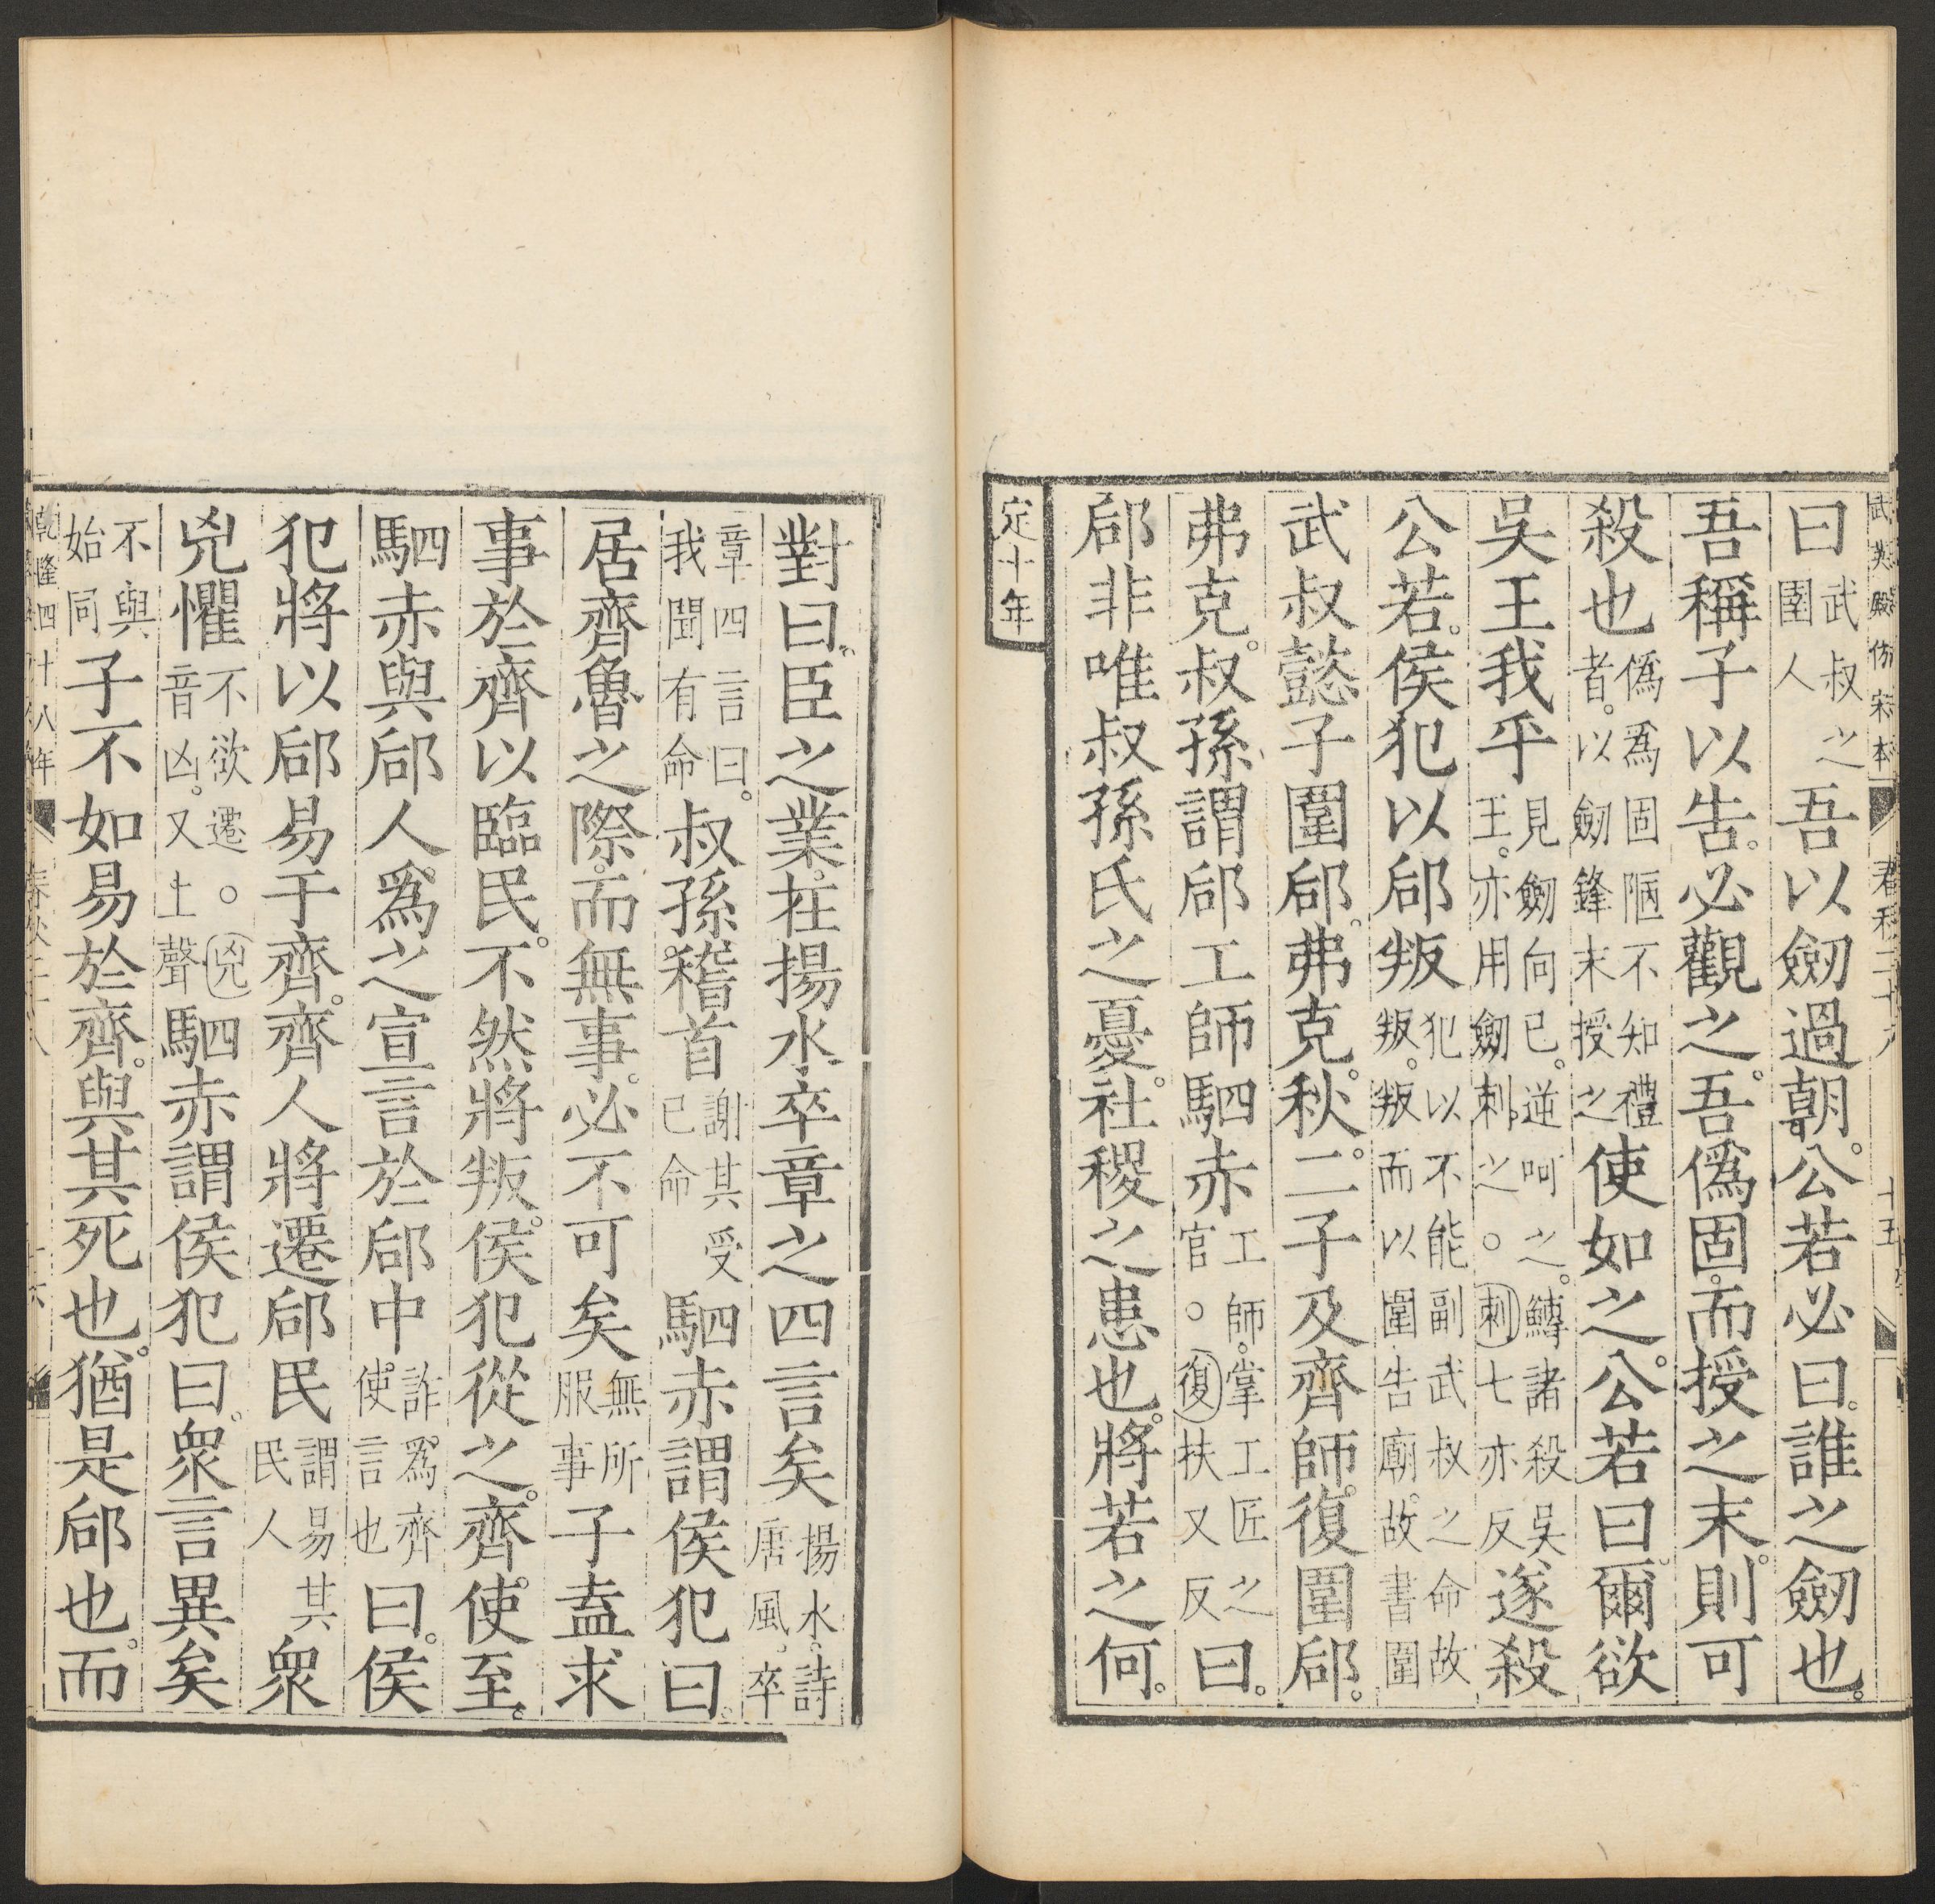 武英殿仿宋本 春秋二十八 十五
曰武叔之圉人吾以劒過朝。公若必曰。誰之劒也。
吾稱子以告。必觀之。吾僞固。而授之末。則可
殺也僞爲固陋不知禮者。以劒鋒末授之使如之。公若曰。爾欲
吳王我乎見劒向已。逆呵之。鱄諸殺吳王。亦用劒刺之。○刺七亦反遂殺
公若。侯犯以郈叛犯以不能副武叔之命故叛。叛而以圍告廟。故書圍
武叔懿子圍郈。弗克。秋。二子及齊師。復圍郈。
弗克。叔孫謂郈工師駟赤工師。掌工匠之官。○復扶又反曰。
郈非唯叔孫氏之憂。社稷之患也。將若之何。
定十年
對曰。臣之業。在揚水卒章之四言矣揚水。詩唐風。卒
章四言曰。我聞有命叔孫。稽首謝其受已命駟赤謂侯犯曰。
居齊魯之際。而無事。必不可矣無所服事子盍求
事於齊以臨民。不然將叛。侯犯從之。齊使至。
駟赤與郈人。爲之宣言於郈中詐爲齊使。言也曰。侯
犯將以郈易于齊。齊人將遷郈民謂易其民人衆
兇懼不欲遷。○兇音凶。又上聲駟赤謂侯犯曰。衆言異矣
不與始同子不如易於齊。與其死也。猶是郈也。而
乾隆四十八年 春秋二十八 十六